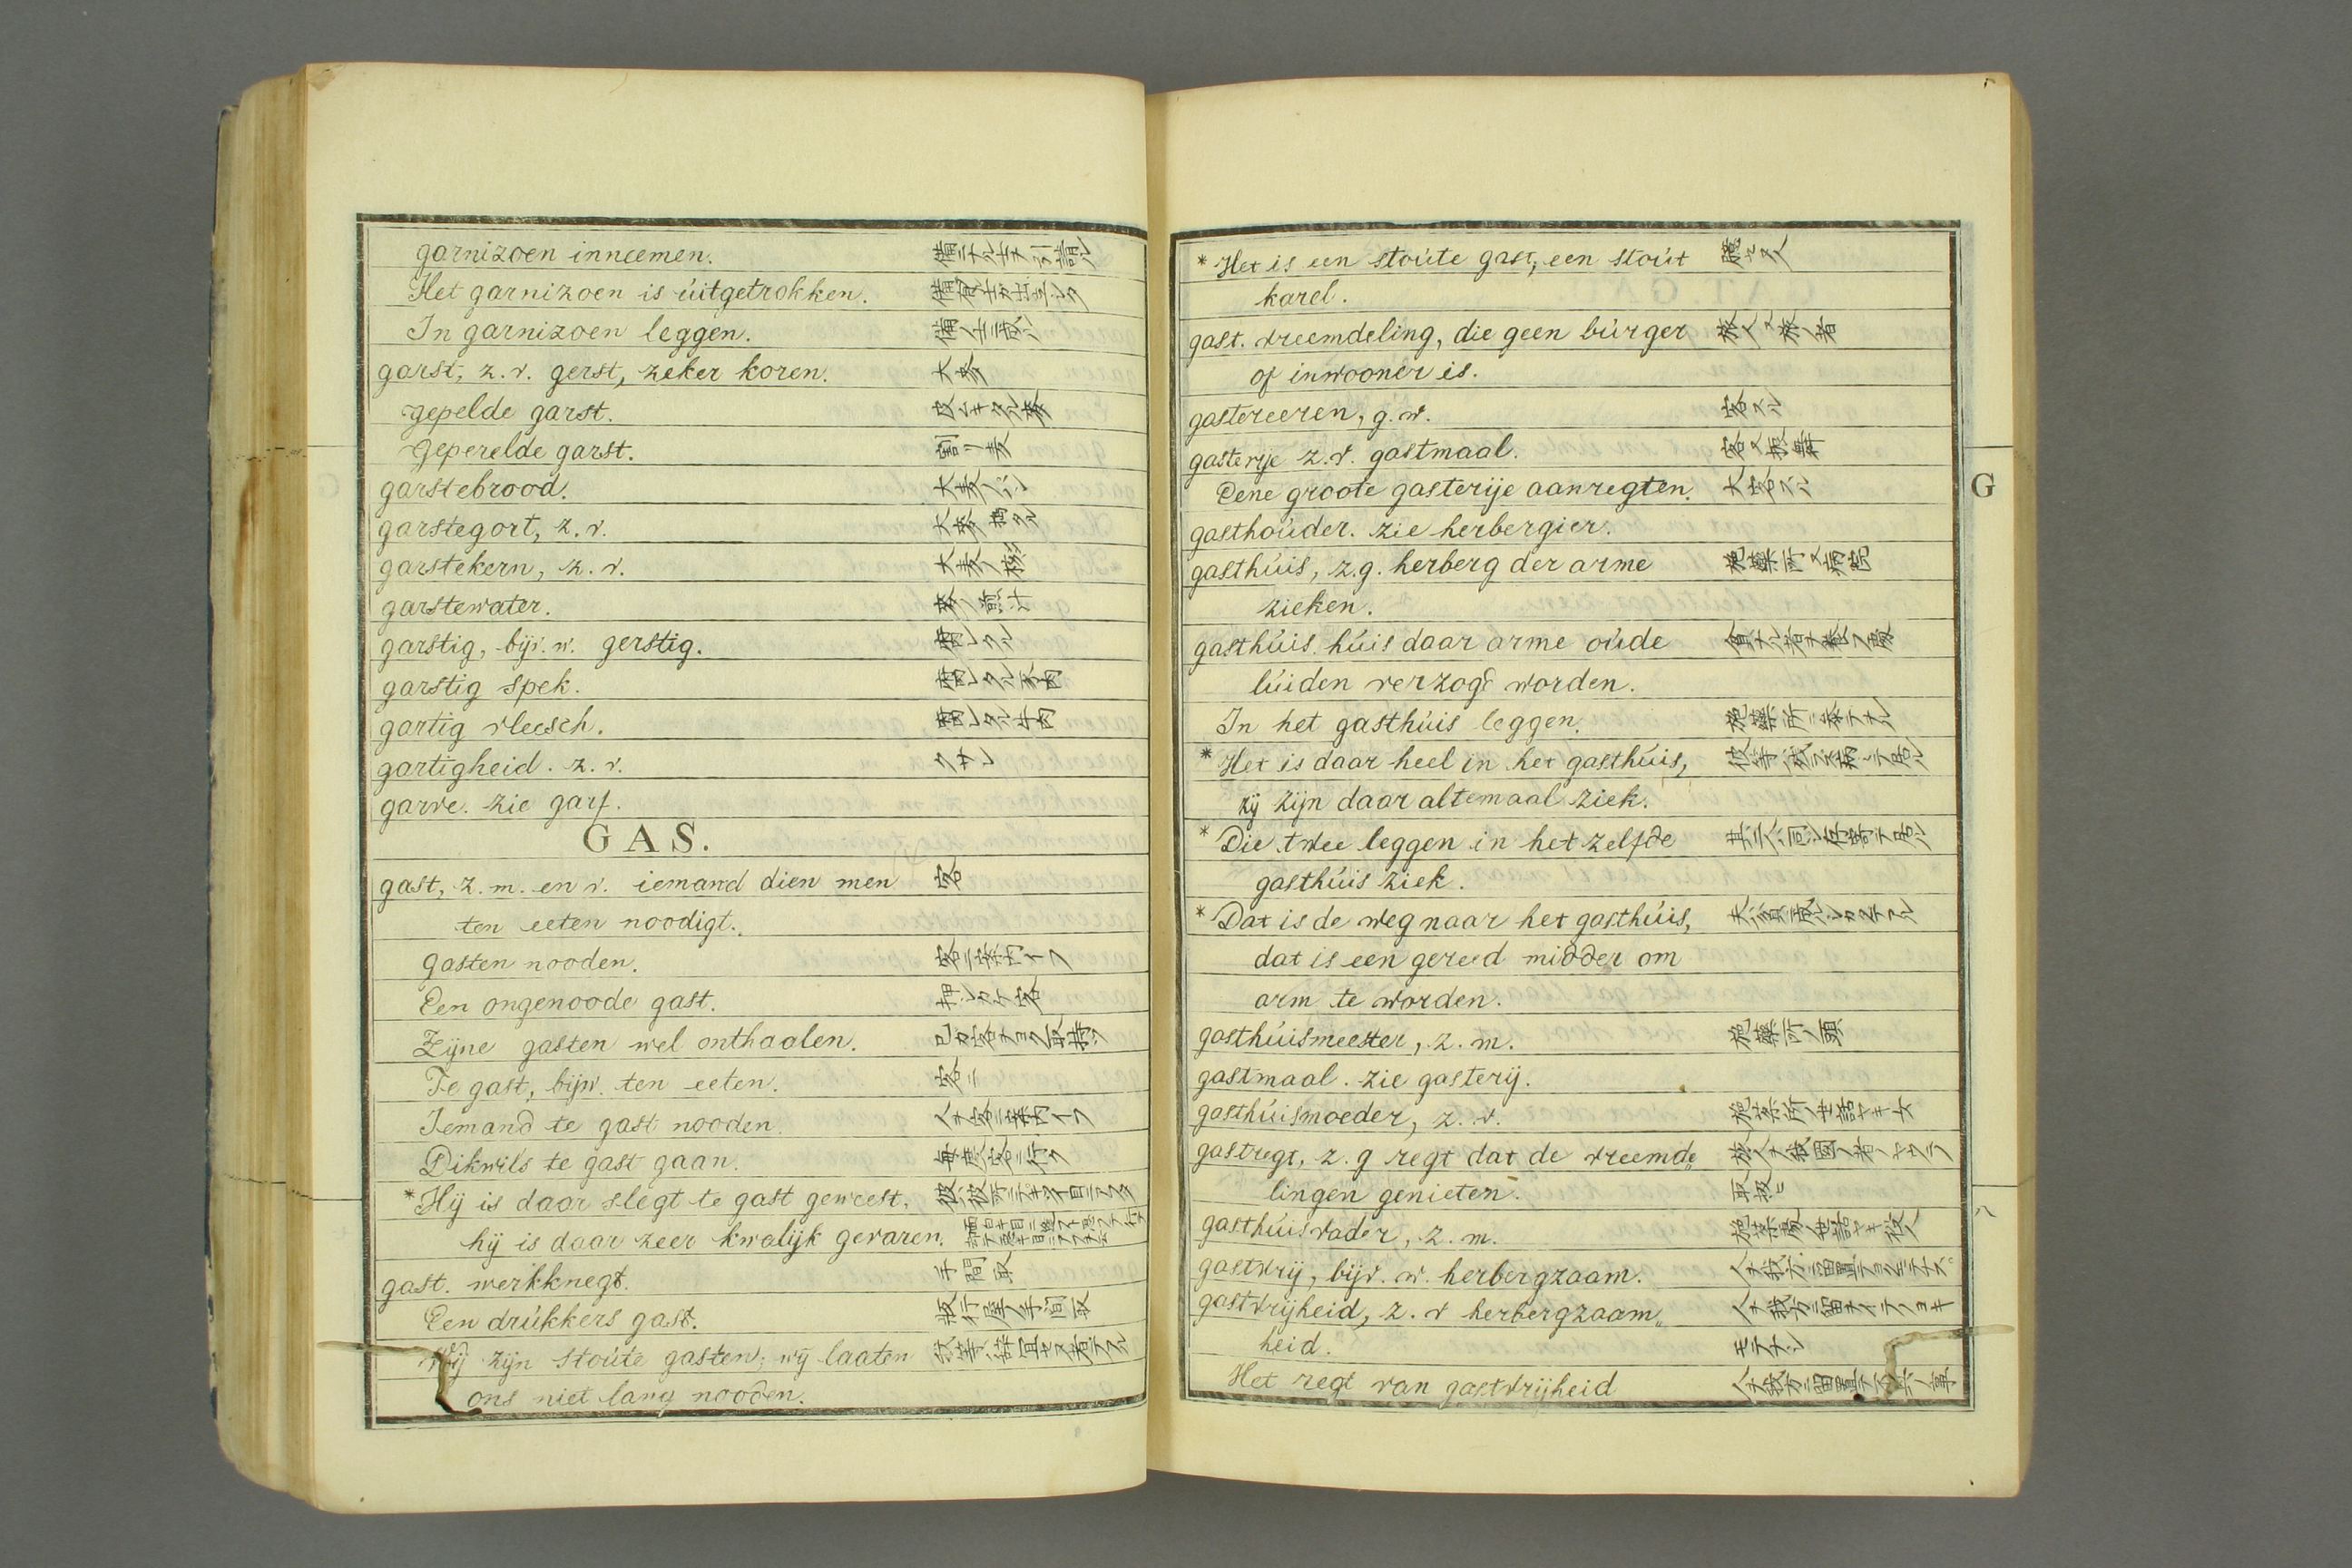 garnizoen inneemen.
Het garnizoen is úitgetrokken.
In garnizoen leggen. 備ノ士ニ成ル
garst, z.v. gerst, zeker koren. 大麥
gepelde garst. 皮ムキタル麥
Geperelde garst. 割リ麦
garstebrood. 大麦ノパン
garstegort, z.v. 大麥搗タル
garstekern, z.v. 大麦ノ核
garstewater. 麥ノ煎汁
garstig, bijv. w. gerstig. 腐レタル
garstig spek. 腐レタル豕肉
gartig vleesch. 腐レタル牛肉
gartigheid. z.v. クサレ
garve. zie garf.
GAS.
gast, z.m. en v. iemand dien men 客
ten eeten noodigt.
Gasten nooden. 客ニ案内イフ
Een ongenoode gast. 押シカケ客
Zijne gasten wel onthaalen. 己カ客ヲヨク取持ツ
Te gast, bijw. ten eeten. 客ニ
Iemand te gast nooden. 人ヲ客ニ案内イフ
Dikwils te gast gaan. 毎度客ニ行ク
* Hij is daar slegt te gast geweest,
hij is daar zeer kwalijk gevaren.
gast. werkknegt. 手間取
Een drúkkers gast. 板行屋ノ手間取
Wij zijn stoúte gasten; wij laaten
ons niet lang nooden.
* Het is een stoúte gast, een stoút
karel.
gast. vreemdeling, die geen búrger 旅人又旅ノ者
of inwooner is.
gastereeren, g.w. 客スル
gasterije z.v. gastmaal. 客又振舞
Eene groote gasterije aanregten. 大客スル
gasthoúder. zie herbergier.
gasthúis, z.g. herberg der arme 施藥所又病院
zieken.
gasthúis. húis daar arme oúde
lúiden verzogd worden.
In het gasthúis leggen.
* Het is daar heel in het gasthúis,
zij zijn daar altemaal ziek.
* Die twee leggen in het zelfde
gasthúis ziek.
* Dat is de weg naar het gasthúis,
dat is een gereed midder om
arm te worden.
gasthúismeester, z.m. 施藥所ノ頭
gastmaal. zie gasterij.
gasthúismoeder, z.v. 施藥所ノ世話ヤキ女
gastregt, z.g regt dat de vreemde„ 旅人ヲ我國ノ者ノヤウニ
lingen genieten. 取扱フ
gasthúisvader, z.m.
gastvrij, bijv. w. herbergzaam.
gastvrijheid, z.v herbergzaam„
heid. モテナシ
Het regt van gastvrijheid
G